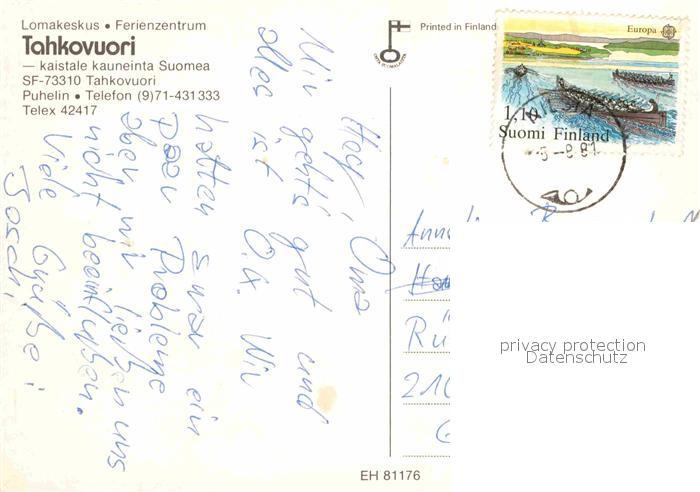 Lomakeskus • Ferienzentrum
Tahkovuori
— kaistale kauneinta Suomea
SF-73310 Tahkovuori
Puhelin • Telefon (9)71-431333
Telex 42417
Printed in Finland
Europa
1,10
Suomi Finland
-5.-8 81
Hey, Oma
Mir gehts gut und
alles ist O.K. Wir
hatten zwar ein
paar Probleme
aber wir ließen uns
nicht beeinflussen.
Viele Grüße!
Josch,
Ann
Rü
210
privacy protection
Datenschutz
EH 81176